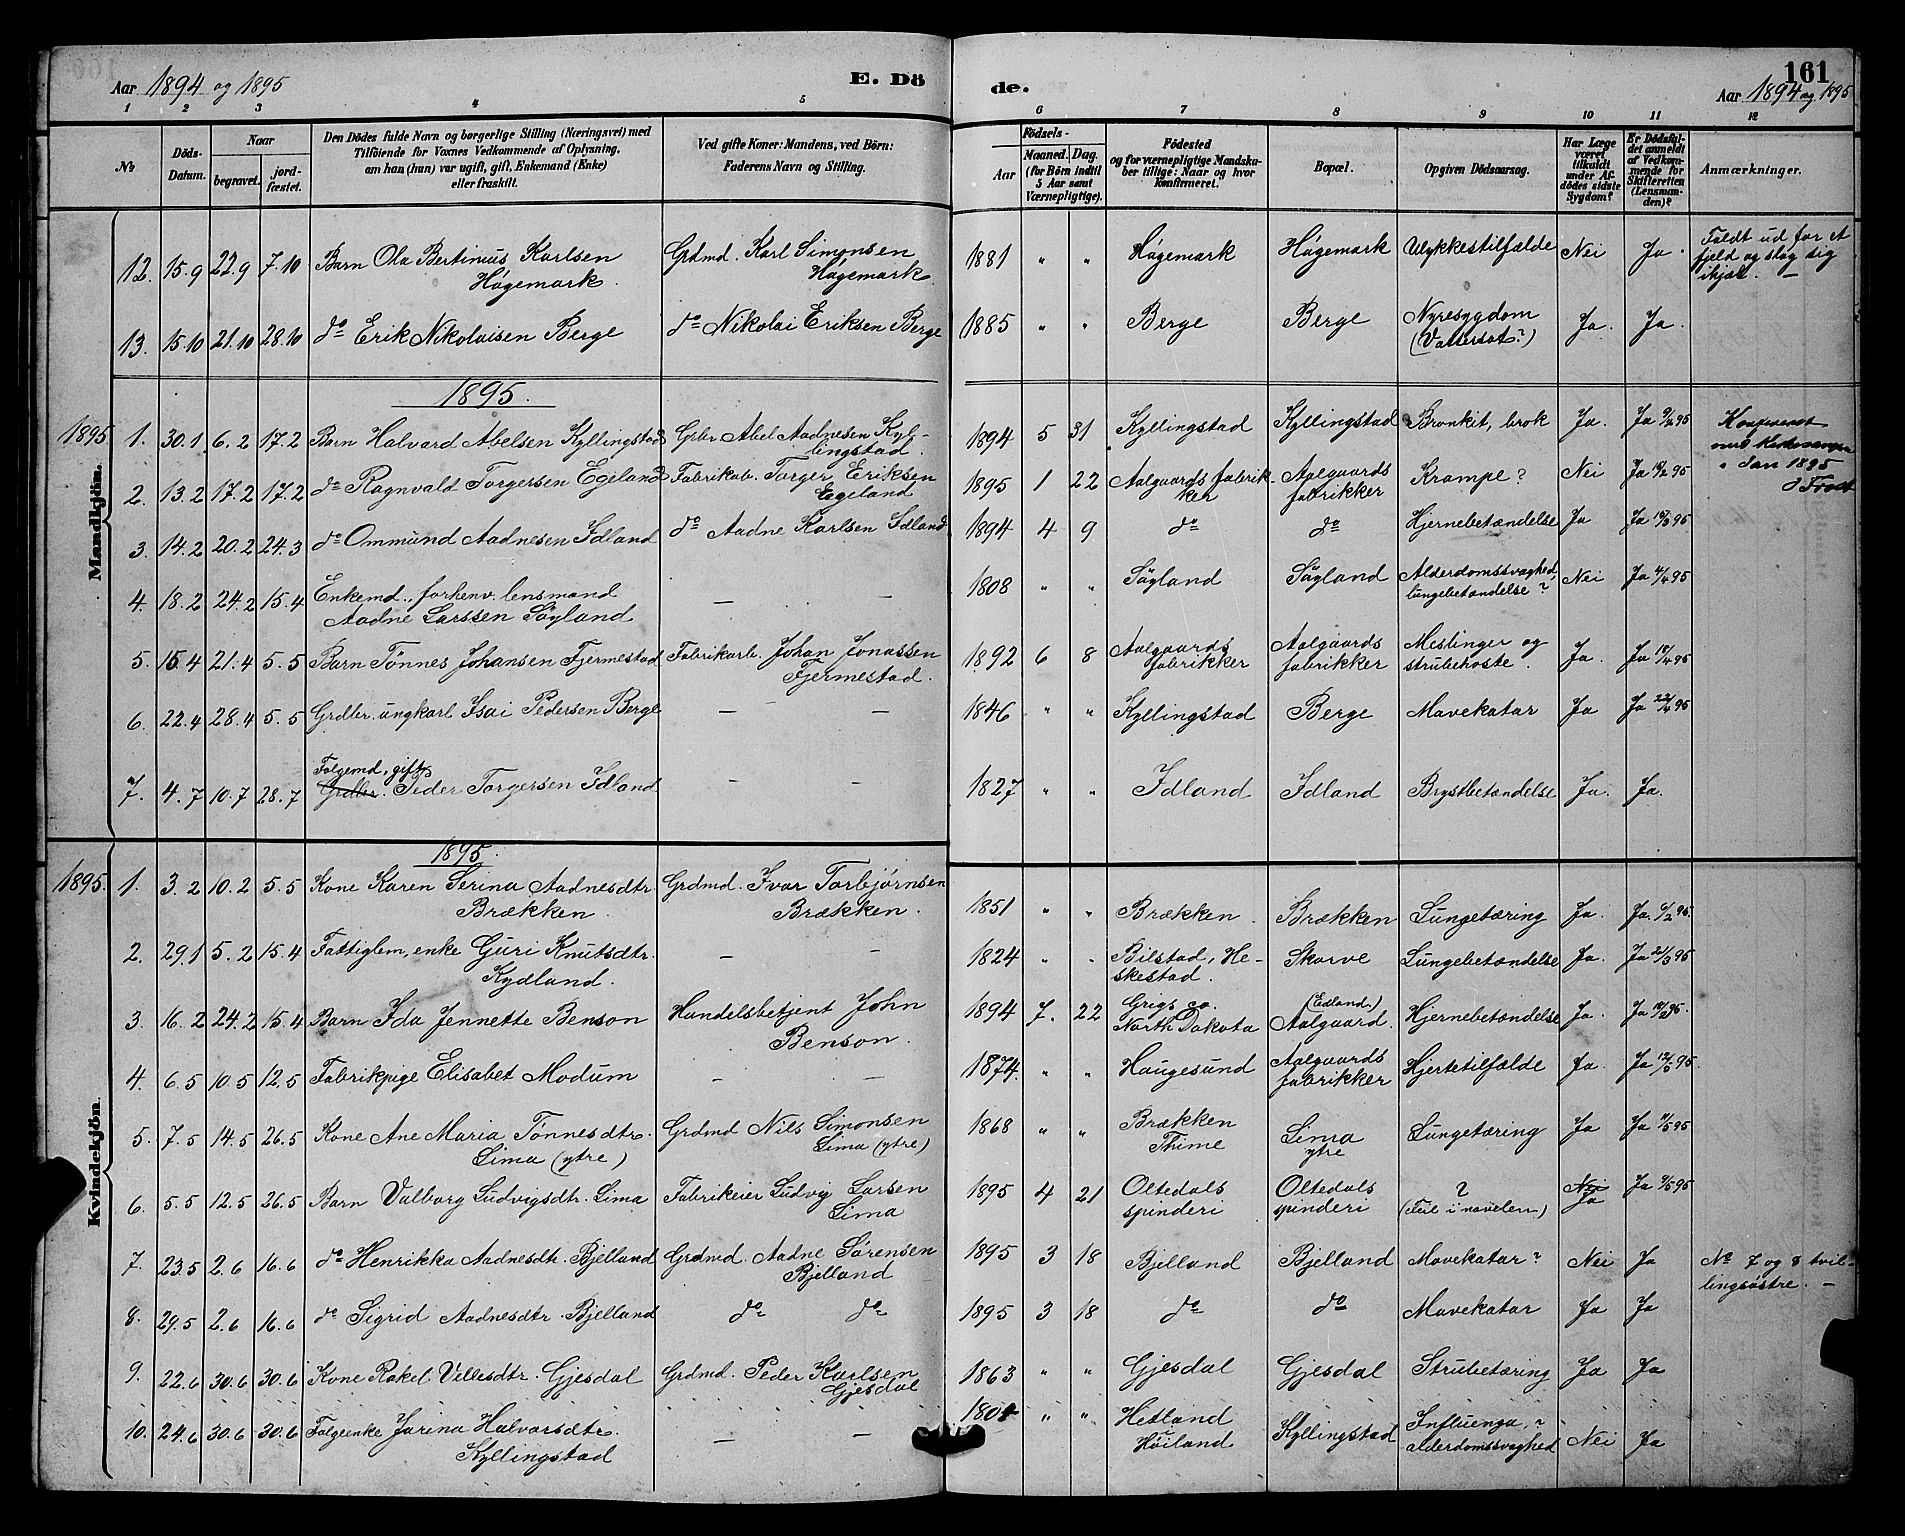 Aar 1894 og 1895
E. Dö
de.
161
Aar 1894 og 1895
1 2 3 4 5 6 7 8 9 10 11 12
No
Döds-Datum.
Naar
begravet.
jord-fæstet.
Den Dödes fulde Navn og borgerlige Stilling (Næringsvei) med
Tilföiende for Voxnes Vedkommende af Oplysning,
om han (hun) var ugift, gift, Enkemand (Enke)
eller fraskilt.
Ved gifte Koner: Mandens, ved Börn:
Faderens Navn og Stilling.
Födsels-
Aar
Maaned.
Dag.
(for Börn indtil
5 Aar samt
Værnepligtige).
Födested
og for værnepligtige Mandska-
ber tillige: Naar og hvor
konfirmeret.
Bopæl.
Opgiven Dödsaarsag.
Har Læge
været
tilkaldt
under Af-
dödes sidste
Sygdom?
Er Dödsfal-
det anmeldt
af Vedkom-
mende for
Skifteretten
(Lensman-
den)?
Anmærkninger.
Mandkjön.
12. 15.9 22.9 7.10 Barn Ola Bertinius Karlsen Høgemark. Grdmd. Karl Simonsen Høgemark. 1881 " " Høgemark Høgemark Ulykkestilfælde Nei Ja. Faldt ud for et
fjeld og slog sig
ihjæl. —
13. 15.10 21.10 28.10 do Erik Nikolaisen Berge do Nikolai Eriksen Berge 1885 " " Berge Berge Nyresygdom (Vattersot?) Ja. Ja.
1895.
1895 1. 30.1 6.2 17.2 Barn Halvard Abelsen Kyllingstad Grbr Abel Aadnesen Kyl-
lingstad. 1894 5 31 Kyllingstad Kyllingstad Bronkit, brok Ja. Ja 9/2 95
2. 13.2 17.2 17.2 do Ragnvald Torgersen Egeland Fabrikab. Torger Eriksen Egeland 1895 1 22 Aalgaards fabrik-
ker Aalgaards fabrikker Krampe? Nei Ja 95
Jan 1895
3. 14.2 20.2 24.3 do Ommund Aadnesen Idland do Aadne Karlsen Idland 1894 4 9 do do Hjernebetændelse Ja Ja 95
4. 18.2 24.2 15.4 Enkemd., forhenv. lensmand
Aadne Larssen Søyland — — 1808 " " Søyland Søyland Alderdomssvaghed,
lungebetændelse? Nei Ja 95
5. 15.4 21.4 5.5 Barn Tønnes Johansen Fjermestad Fabrikarb. Johan Jonassen
Fjermestad. 1892 6 8 Aalgaards fabrikker Aalgaards fabrikker Meslinger og
strubehoste. Ja. Ja 95
6. 22.4 28.4 5.5 Grdbr. ungkarl Isai Pedersen Berge — — 1846 " " Kyllingstad Berge Mavekatar Ja Ja 22/4 95
7. 4.7 10.7 28.7 Folgemd, gift
Grdbr. Peder Torgersen Idland — — 1827 " " Idland Idland Brystbetændelse Ja. Ja.
Kvindekjön.
1895.
1895. 1. 3.2 10.2 5.5 Kone Karen Serina Aadnesdtr.
Brækken. Grdmd. Ivar Torbjørnsen
Brækken. 1851 " " Brækken. Brækken Lungetæring Ja. Ja. 95.
2. 29.1 5.2 15.4 Fattiglem, enke Guri Knutsdtr.
Kydland. — — 1824 " " Bilstad, He-
skestad. Skurve Lungebetændelse Ja. Ja 21/3 95
3. 16.2 24.2 15.4 Barn Ida Jennette Benson Handelsbetjent John
Benson. 1894 7. 22 Grigs co.
North Dakota (Edland)
Aalgaard. Hjernebetændelse Ja. Ja 95.
4. 6.5 10.5 12.5 Fabrikpige Elisabet Modum — — 1874. " " Haugesund Aalgaards fabrikker Hjertetilfælde Ja. Ja 12/5 95
5. 7.5 14.5 26.5 Kone Ane Maria Tønnesdtr.
Lima (ytre) Grdmd Nils Simonsen
Lima (ytre) 1868 " " Brækken
Thime Lima
ytre Lungetæring Ja Ja 95
6. 5.5 12.5 26.5 Barn Valborg Ludvigsdtr. Lima Fabrikeier Ludvig Larsen
Lima 1895 4 21 Oltedals
spinderi Oltedals
spinderi ?
(Feil i navelen) Nei
Ja Ja 95
7. 23.5 2.6 16.6 do Henrikka Aadnesdtr. Bjelland Grdmd. Aadne Sørensen
Bjelland 1895 3 18 Bjelland Bjelland Mavekatar? Nei Ja No 7 og 8 tvil-
lingsøstre. —
8. 29.5 2.6 16.6 do Sigrid Aadnesdtr. Bjelland do do 1895 3 18 do do Mavekatar Ja Ja
9. 22.6 30.6 30.6 Kone Rakel Villesdtr. Gjesdal Grdmd. Peder Karlsen
Gjesdal 1863 " " Gjesdal Gjesdal Strubetæring Ja Ja
10. 24.6 30.6 30.6 Folgeenke Jorina Halvorsdtr.
Kyllingstad — — 1804 " " Hetland
Høiland Kyllingstad Influenza,?
alderdomssvaghed Nei Ja